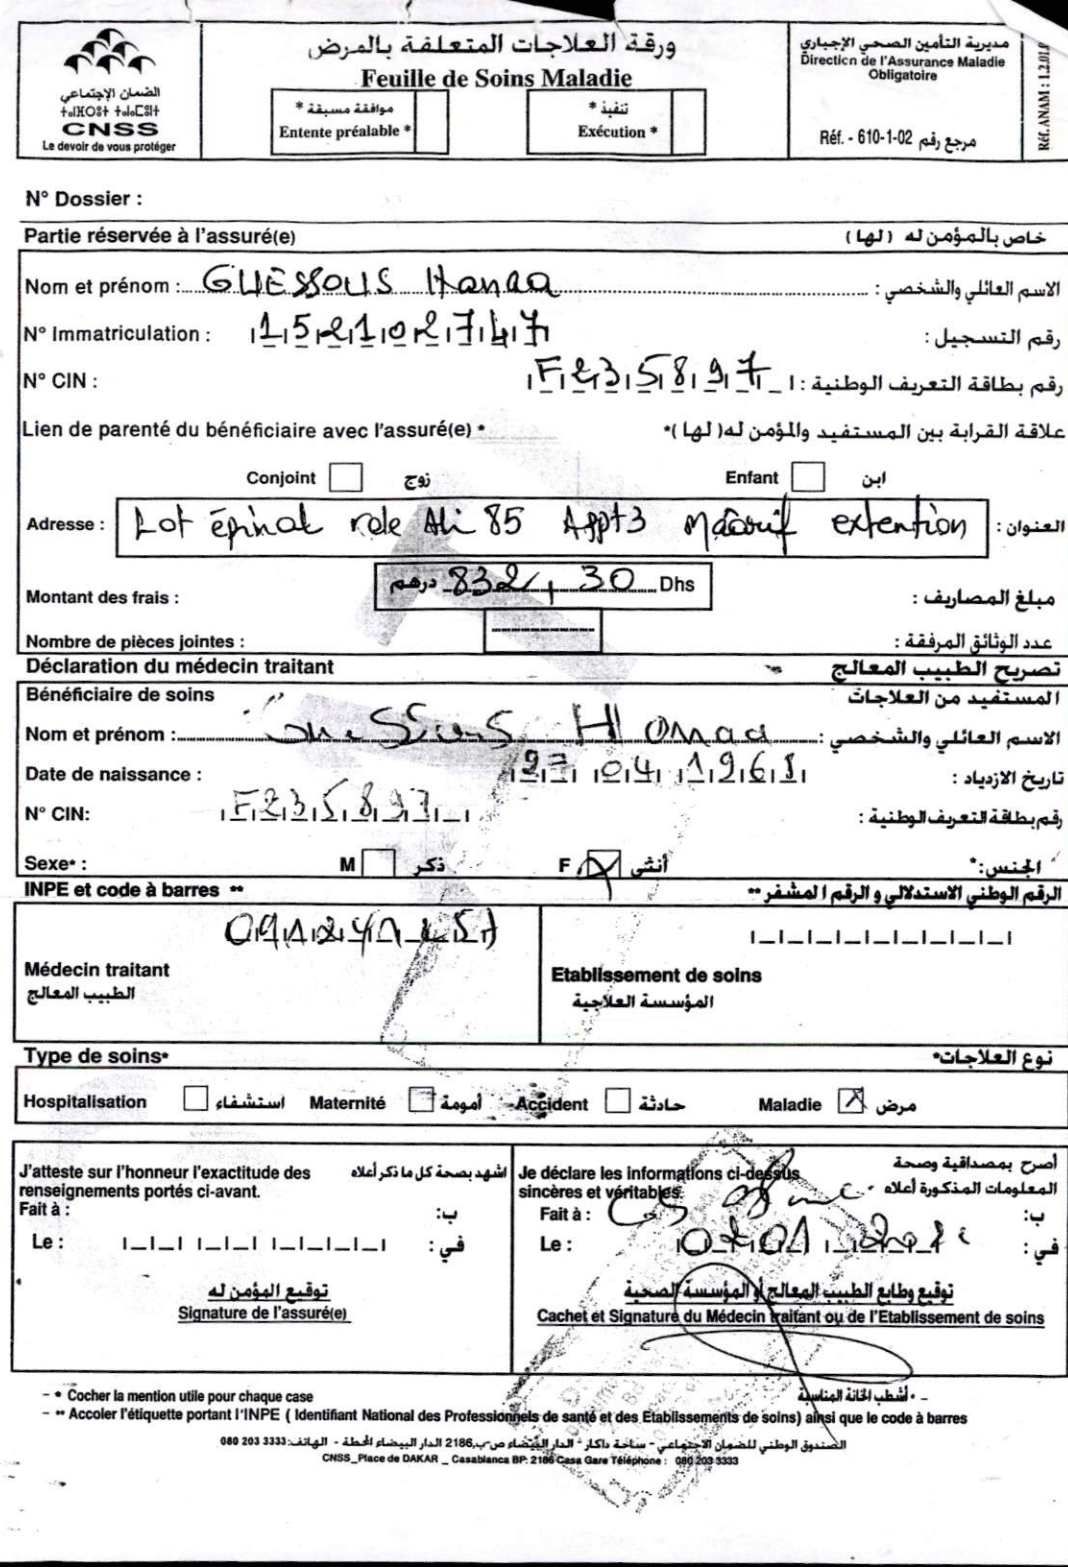 ورقة العلاجات المتعلقة بالمرض
Feuille de Soins Maladie
الضمان الإجتماعي
CNSS
Le devoir de vous protéger
موافقة مسبقة *
Entente préalable *
تنفيذ *
Exécution *
مديرية التأمين الصحي الإجباري
Direction de l'Assurance Maladie
Obligatoire
Réf. - 610-1-02 مرجع رقم
Réf. ANAM : 1.2.01.0
N° Dossier :
Partie réservée à l'assuré(e) خاص بالمؤمن له (لها)
Nom et prénom : GUESSOUS Hanaa الاسم العائلي والشخصي :
N° Immatriculation : 152102747 رقم التسجيل :
N° CIN : F235897 رقم بطاقة التعريف الوطنية :
Lien de parenté du bénéficiaire avec l'assuré(e) * علاقة القرابة بين المستفيد والمؤمن له( لها )*
Conjoint زوج Enfant ابن
Adresse : Lot épinal Ali 85 Appt3 Maârif extention العنوان :
Montant des frais : درهم 832,30 Dhs مبلغ المصاريف :
Nombre de pièces jointes : عدد الوثائق المرفقة :
Déclaration du médecin traitant تصريح الطبيب المعالج
Bénéficiaire de soins المستفيد من العلاجات
Nom et prénom : Guessous Hanaa الاسم العائلي والشخصي :
Date de naissance : 27 04 1961 تاريخ الازدياد :
N° CIN: F235897 رقم بطاقة التعريف الوطنية :
Sexe* : M ذكر F أنثى الجنس:*
INPE et code à barres ** الرقم الوطني الاستدلالي و الرقم المشفر **
Médecin traitant
الطبيب المعالج
Etablissement de soins
المؤسسة العلاجية
Type de soins* نوع العلاجات*
Hospitalisation استشفاء Maternité أمومة Accident حادثة Maladie مرض
J'atteste sur l'honneur l'exactitude des
renseignements portés ci-avant.
اشهد بصحة كل ما ذكر أعلاه
Fait à : ب:
Le : في :
توقيع المؤمن له
Signature de l'assuré(e)
Je déclare les informations ci-dessus
sincères et véritables.
أصرح بمصداقية وصحة
المعلومات المذكورة أعلاه
Fait à : ب:
Le : في :
توقيع وطابع الطبيب المعالج أو المؤسسة الصحية
Cachet et Signature du Médecin traitant ou de l'Etablissement de soins
- * Cocher la mention utile pour chaque case - * أشطب الخانة المناسبة
- ** Accoler l'étiquette portant l'INPE ( Identifiant National des Professionnels de santé et des Etablissements de soins) ainsi que le code à barres
الصندوق الوطني للضمان الاجتماعي - ساحة داكار - الدار البيضاء ص.ب,2186 الدار البيضاء المحطة - الهاتف: 080 203 3333
CNSS_Place de DAKAR _ Casablanca BP: 2186 Casa Gare Téléphone : 080 203 3333